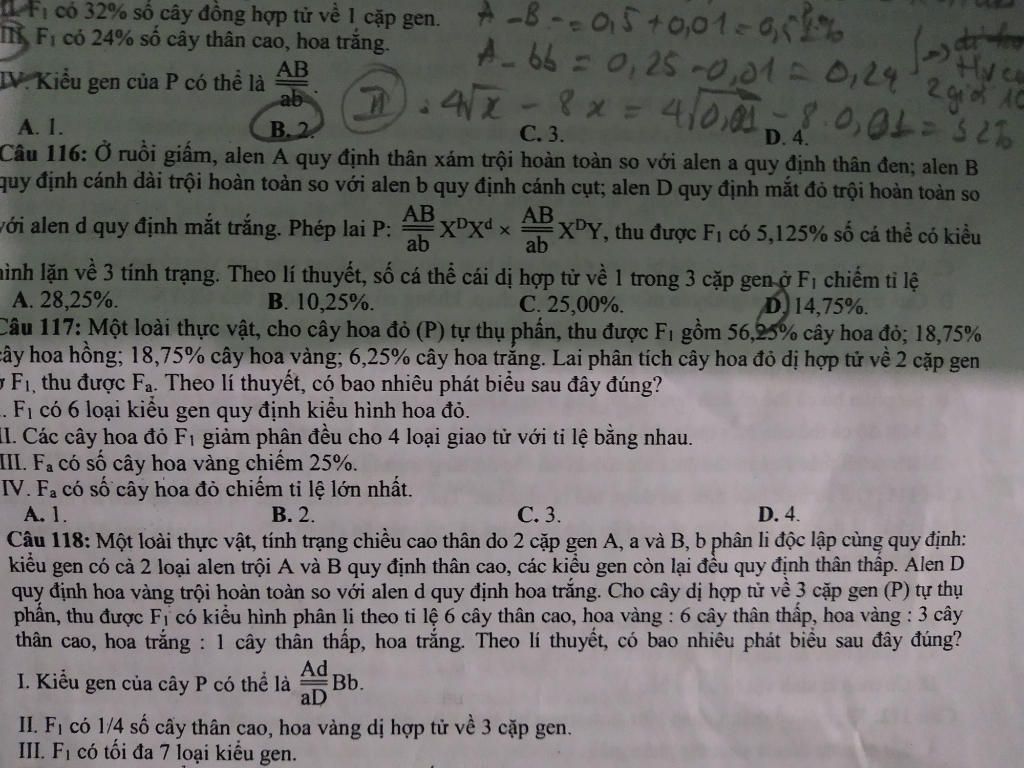 II. F₁ có 32% số cây đồng hợp tử về 1 cặp gen.
III. F₁ có 24% số cây thân cao, hoa trắng.
IV. Kiểu gen của P có thể là AB/ab.
A. 1. B. 2. C. 3. D. 4.
A - B - = 0,5 + 0,01 = 0,51%
A - bb = 0,25 - 0,01 = 0,24
II : 4√x - 8x = 4√0,01 - 8.0,01 = 32%
Câu 116: Ở ruồi giấm, alen A quy định thân xám trội hoàn toàn so với alen a quy định thân đen; alen B
quy định cánh dài trội hoàn toàn so với alen b quy định cánh cụt; alen D quy định mắt đỏ trội hoàn toàn so
với alen d quy định mắt trắng. Phép lai P: AB/ab XᴰXᵈ × AB/ab XᴰY, thu được F₁ có 5,125% số cá thể có kiểu
hình lặn về 3 tính trạng. Theo lí thuyết, số cá thể cái dị hợp tử về 1 trong 3 cặp gen ở F₁ chiếm tỉ lệ
A. 28,25%. B. 10,25%. C. 25,00%. D. 14,75%.
Câu 117: Một loài thực vật, cho cây hoa đỏ (P) tự thụ phấn, thu được F₁ gồm 56,25% cây hoa đỏ; 18,75%
cây hoa hồng; 18,75% cây hoa vàng; 6,25% cây hoa trắng. Lai phân tích cây hoa đỏ dị hợp tử về 2 cặp gen
ở F₁, thu được Fₐ. Theo lí thuyết, có bao nhiêu phát biểu sau đây đúng?
I. F₁ có 6 loại kiểu gen quy định kiểu hình hoa đỏ.
II. Các cây hoa đỏ F₁ giảm phân đều cho 4 loại giao tử với tỉ lệ bằng nhau.
III. Fₐ có số cây hoa vàng chiếm 25%.
IV. Fₐ có số cây hoa đỏ chiếm tỉ lệ lớn nhất.
A. 1. B. 2. C. 3. D. 4.
Câu 118: Một loài thực vật, tính trạng chiều cao thân do 2 cặp gen A, a và B, b phân li độc lập cùng quy định:
kiểu gen có cả 2 loại alen trội A và B quy định thân cao, các kiểu gen còn lại đều quy định thân thấp. Alen D
quy định hoa vàng trội hoàn toàn so với alen d quy định hoa trắng. Cho cây dị hợp tử về 3 cặp gen (P) tự thụ
phấn, thu được F₁ có kiểu hình phân li theo tỉ lệ 6 cây thân cao, hoa vàng : 6 cây thân thấp, hoa vàng : 3 cây
thân cao, hoa trắng : 1 cây thân thấp, hoa trắng. Theo lí thuyết, có bao nhiêu phát biểu sau đây đúng?
I. Kiểu gen của cây P có thể là Ad/aD Bb.
II. F₁ có 1/4 số cây thân cao, hoa vàng dị hợp tử về 3 cặp gen.
III. F₁ có tối đa 7 loại kiểu gen.